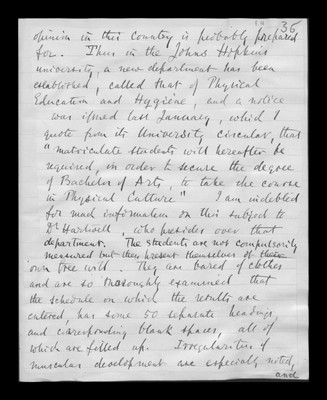 36
opinion in this country is probably prepared
for. Thus in the Johns Hopkins
university, a new department has been
established, called that of Physical
Education and Hygiene, and a notice
was issued last January, which I
quote from its University circular, that
"matriculate students will hereafter be
required, in order to secure the degree
of Bachelor of Arts, to take the course
in Physical Culture" I am indebted
for much information on this subject to
Dr Hartwell, who presides over that
department. The students are not compulsorily
measured but they present themselves of their
own free will. They are bared of clothes
and are so thoroughly examined that
the schedule on which the results are
entered, has some 50 separate headings,
and corresponding blank spaces, all of
which are filled up. Irregularities of
muscular development are especially noted,
and